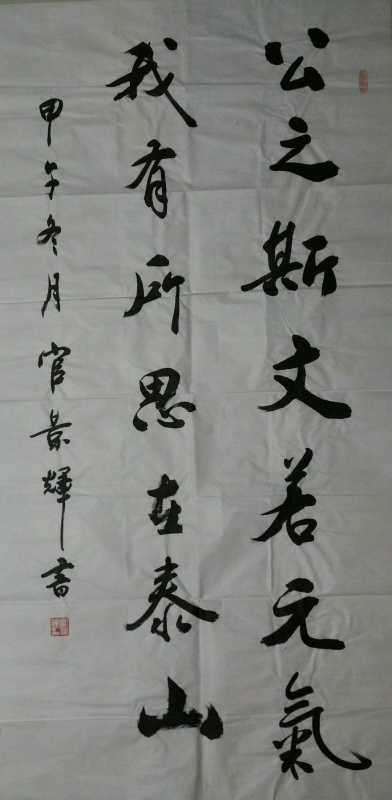 公之斯文若元氣
我有所思在泰山
甲午冬月官景輝書